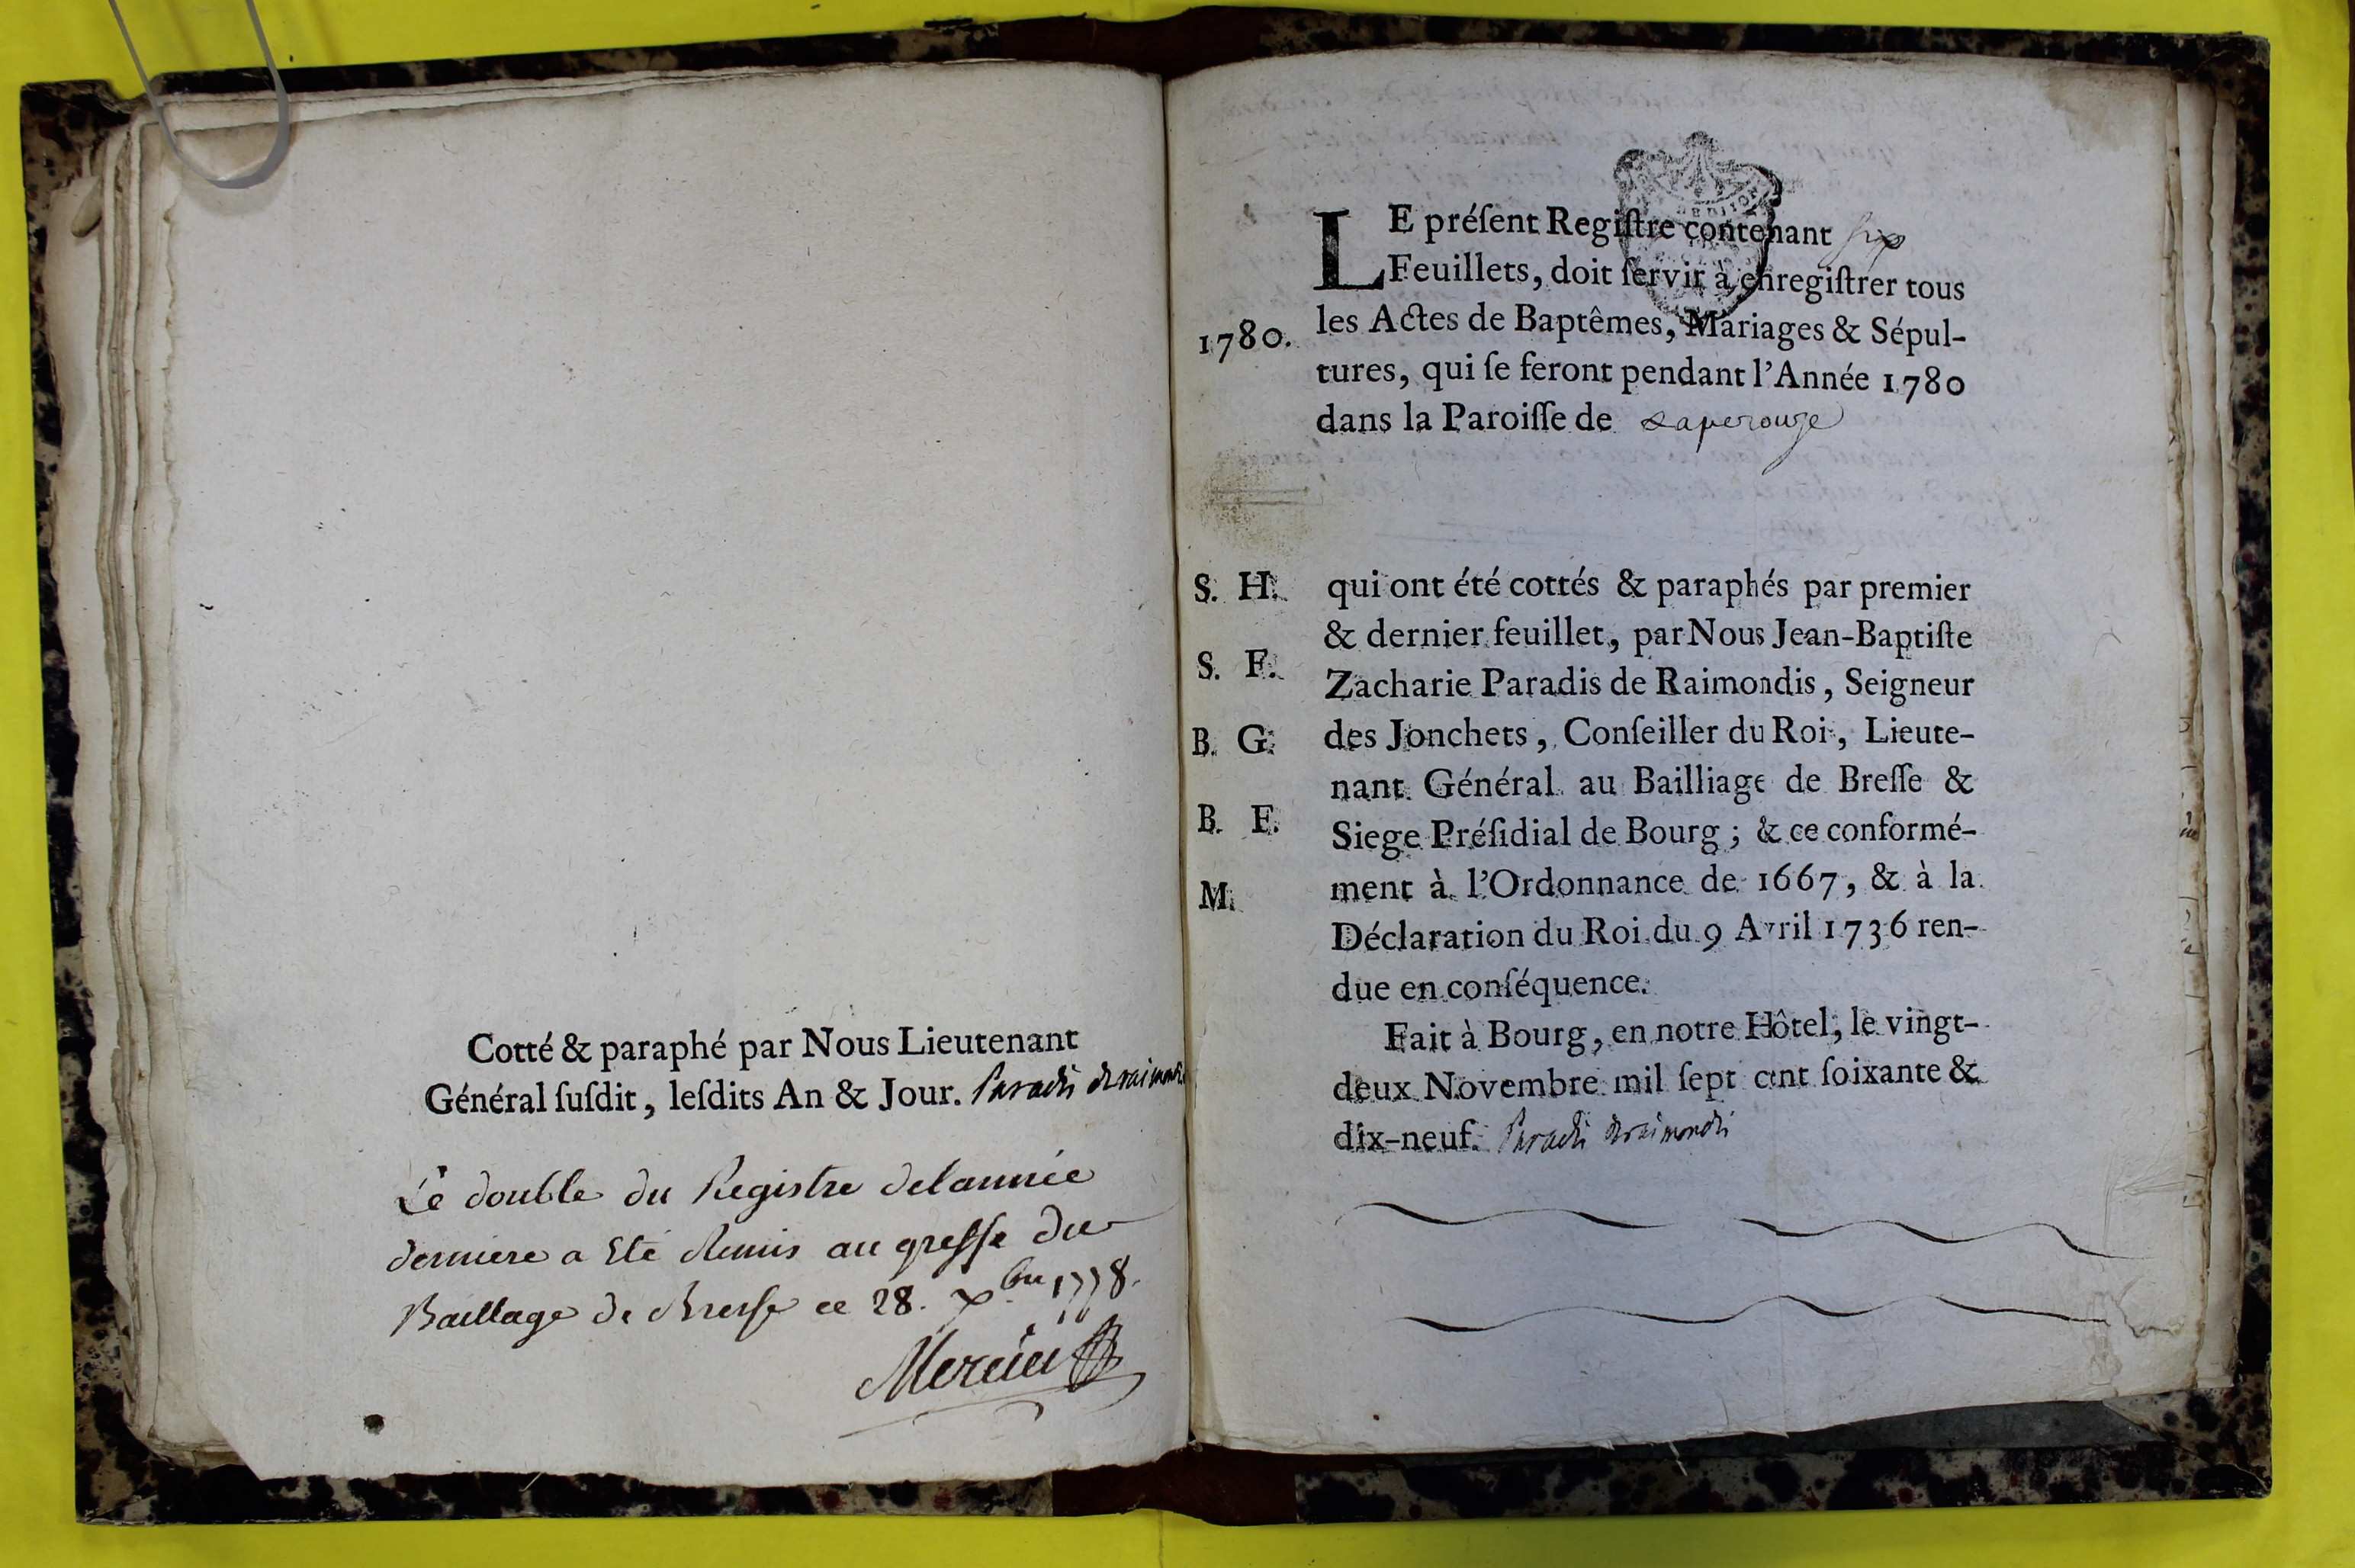 Cotté & paraphé par Nous Lieutenant
Général ſuſdit, leſdits An & Jour. Paradis deraimondis
Le double du Registre delannée
derniere a Eté Remis au greffe du
Baillage de Bresse ce 28. xbre 1778.
Mercier
LE préſent Regiſtre contenant six
Feuillets, doit ſervir à enregiſtrer tous
1780. les Actes de Baptêmes, Mariages & Sépul-
tures, qui ſe feront pendant l'Année 1780
dans la Paroiſſe de Laperouze
S. H.
S. F.
B. G.
B. F.
M.
qui ont été cottés & paraphés par premier
& dernier feuillet, par Nous Jean-Baptiſte
Zacharie Paradis de Raimondis, Seigneur
des Jonchets, Conſeiller du Roi, Lieute-
nant Général au Bailliage de Breſſe &
Siege Préſidial de Bourg ; & ce conformé-
ment à l'Ordonnance de 1667, & à la
Déclaration du Roi du 9 Avril 1736 ren-
due en conſéquence.
Fait à Bourg, en notre Hôtel, le vingt-
deux Novembre mil ſept cent ſoixante &
dix-neuf. Paradis deraimondis